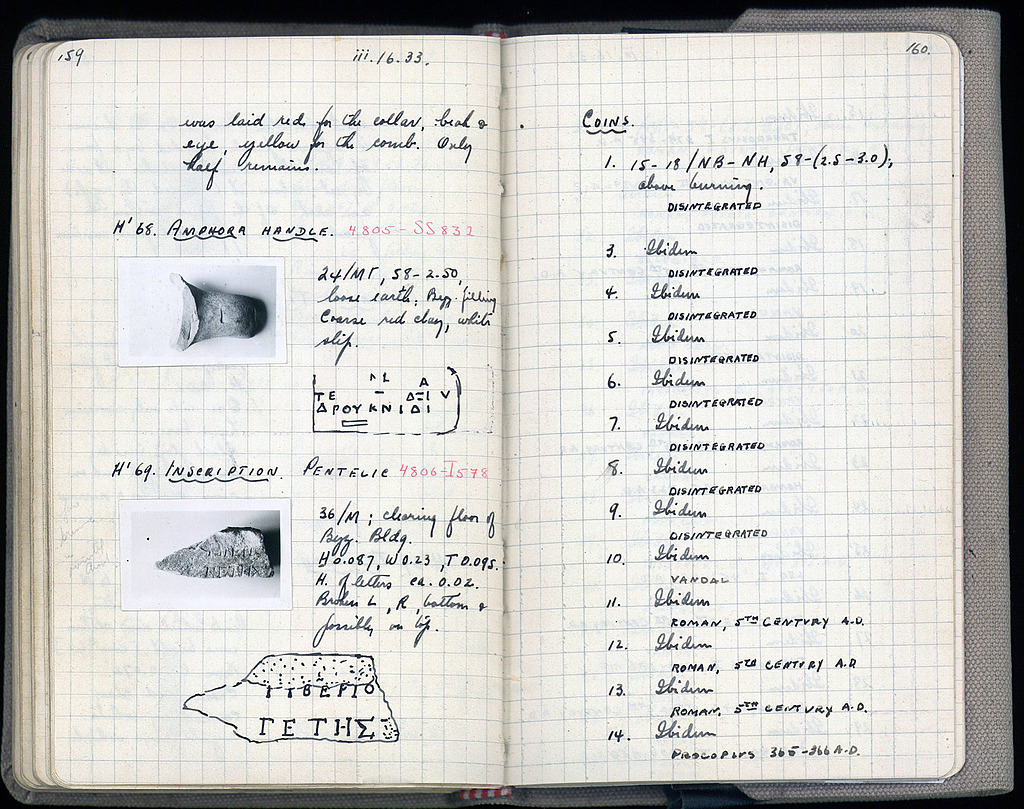 159
iii.16.33.
was laid red for the collar, beak &
eye, yellow for the comb. Only
half remains.
H'68. AMPHORA HANDLE. 4805-SS832
24/MΓ, 58-2.50,
loose earth; Byz. filling
Coarse red clay, white
slip.
Α
ΤΕ ΔΞΙ V
ΔΡΟΥ ΚΝΙΔΙ
H'69. INSCRIPTION. PENTELIC 4806-I578
36/M; clearing floor of
Byz. Bldg.
H 0.087, W 0.23, T 0.095.
H. of letters ca. 0.02.
Broken L, R, bottom &
possibly on top.
ΤΙΒΕΡΙΟ
ΓΕΤΗΣ
160.
COINS.
1. 15-18/NB-NH, 58-(2.5-3.0);
above burning.
DISINTEGRATED
3. Ibidem
DISINTEGRATED
4. Ibidem
DISINTEGRATED
5. Ibidem
DISINTEGRATED
6. Ibidem
DISINTEGRATED
7. Ibidem
DISINTEGRATED
8. Ibidem
DISINTEGRATED
9. Ibidem
DISINTEGRATED
10. Ibidem
VANDAL
11. Ibidem
ROMAN, 5TH CENTURY A.D.
12. Ibidem
ROMAN, 5TH CENTURY A.D
13. Ibidem
ROMAN, 5TH CENTURY A.D.
14. Ibidem
PROCOPIUS 365-366 A.D.